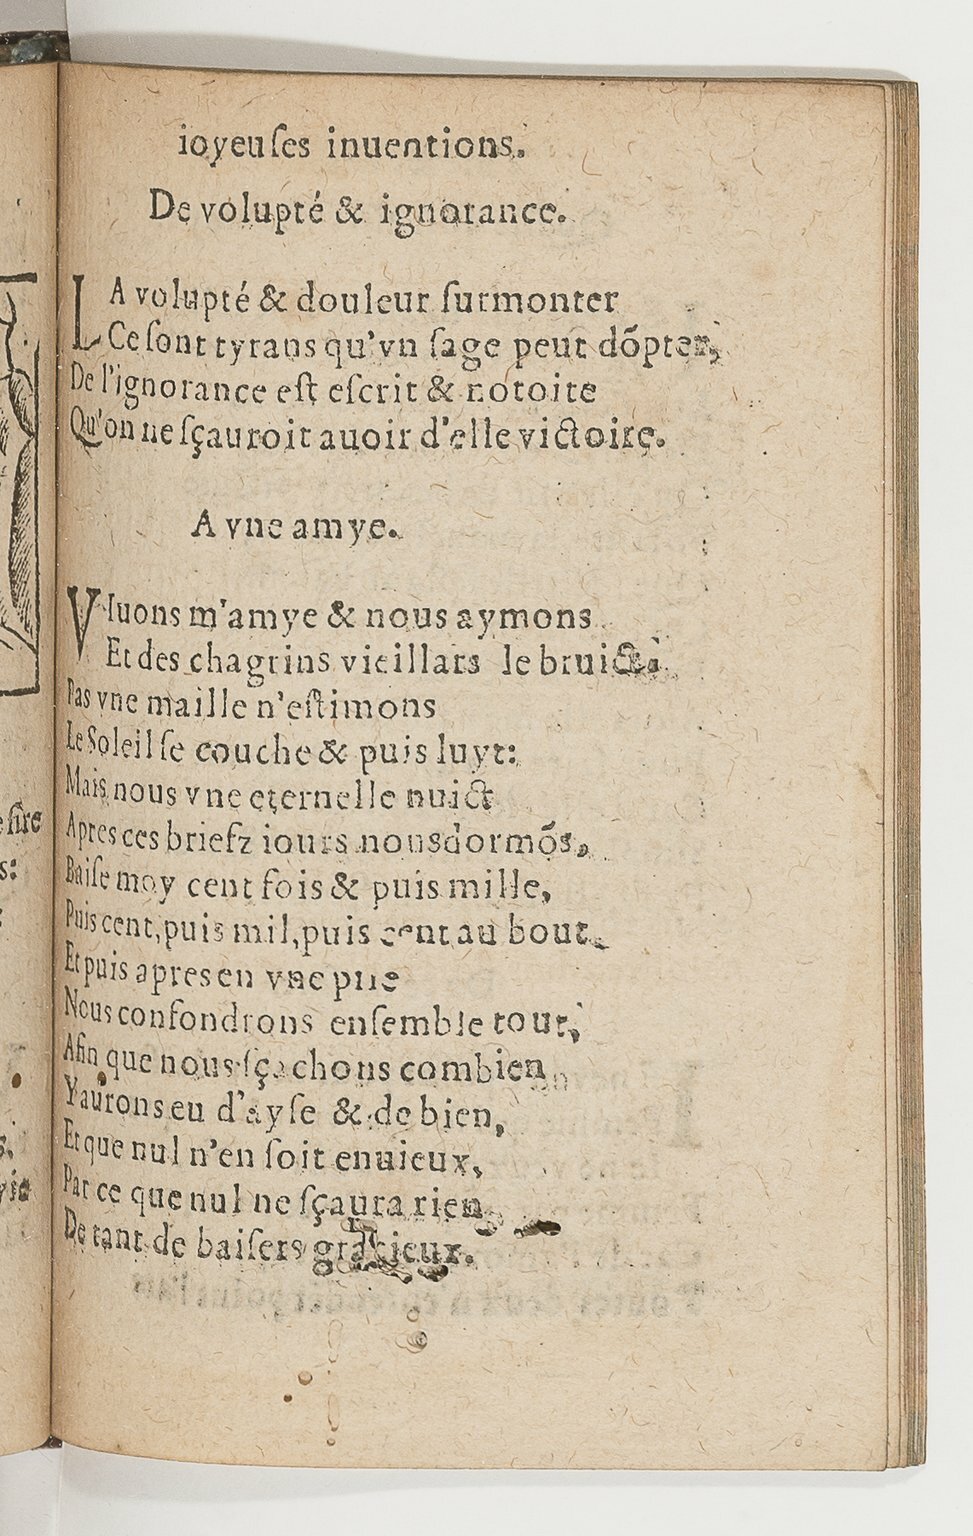 ioyeuſes inuentions.
De volupté & ignorance.
LA volupté & douleur ſurmonter
Ce ſont tyrans qu'vn ſage peut dõpter,
De l'ignorance eſt eſcrit & notoite
Qu'on ne ſçauroit auoir d'elle victoire.
A vne amye.
VIuons m'amye & nous aymons
Et des chagrins vieillars le bruict,
Pas vne maille n'eſtimons
Le Soleil ſe couche & puis luyt:
Mais nous vne eternelle nuict
Apres ces briefz iours nous dormõs,
Baiſe moy cent fois & puis mille,
Puis cent, puis mil, puis cent au bout,
Et puis apres en vne pile
Nous confondrons enſemble tout,
Afin que nous ſçachons combien
Y aurons eu d'ayſe & de bien,
Et que nul n'en ſoit enuieux,
Par ce que nul ne ſçaura rien
De tant de baiſers gracieux.
ſire
s: